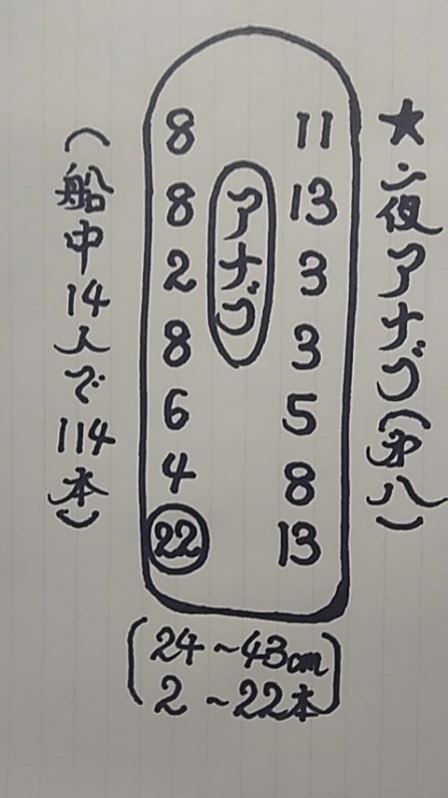 ★夜アナゴ(㐧八)
アナゴ
8 11
8 13
2 3
8 3
6 5
4 8
22 13
(船中14人で114本)
24~43cm
2~22本